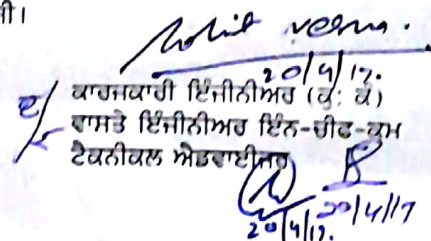 ਜੀ।
20/4/17.
ਕਾਰਜਕਾਰੀ ਇੰਜੀਨੀਅਰ (ਕੁ: ਕੰ)
ਵਾਸਤੇ ਇੰਜੀਨੀਅਰ ਇੰਨ-ਚੀਫ-ਕਮ
ਟੈਕਨੀਕਲ ਐਡਵਾਈਜਰ
20/4/17. 20/4/17